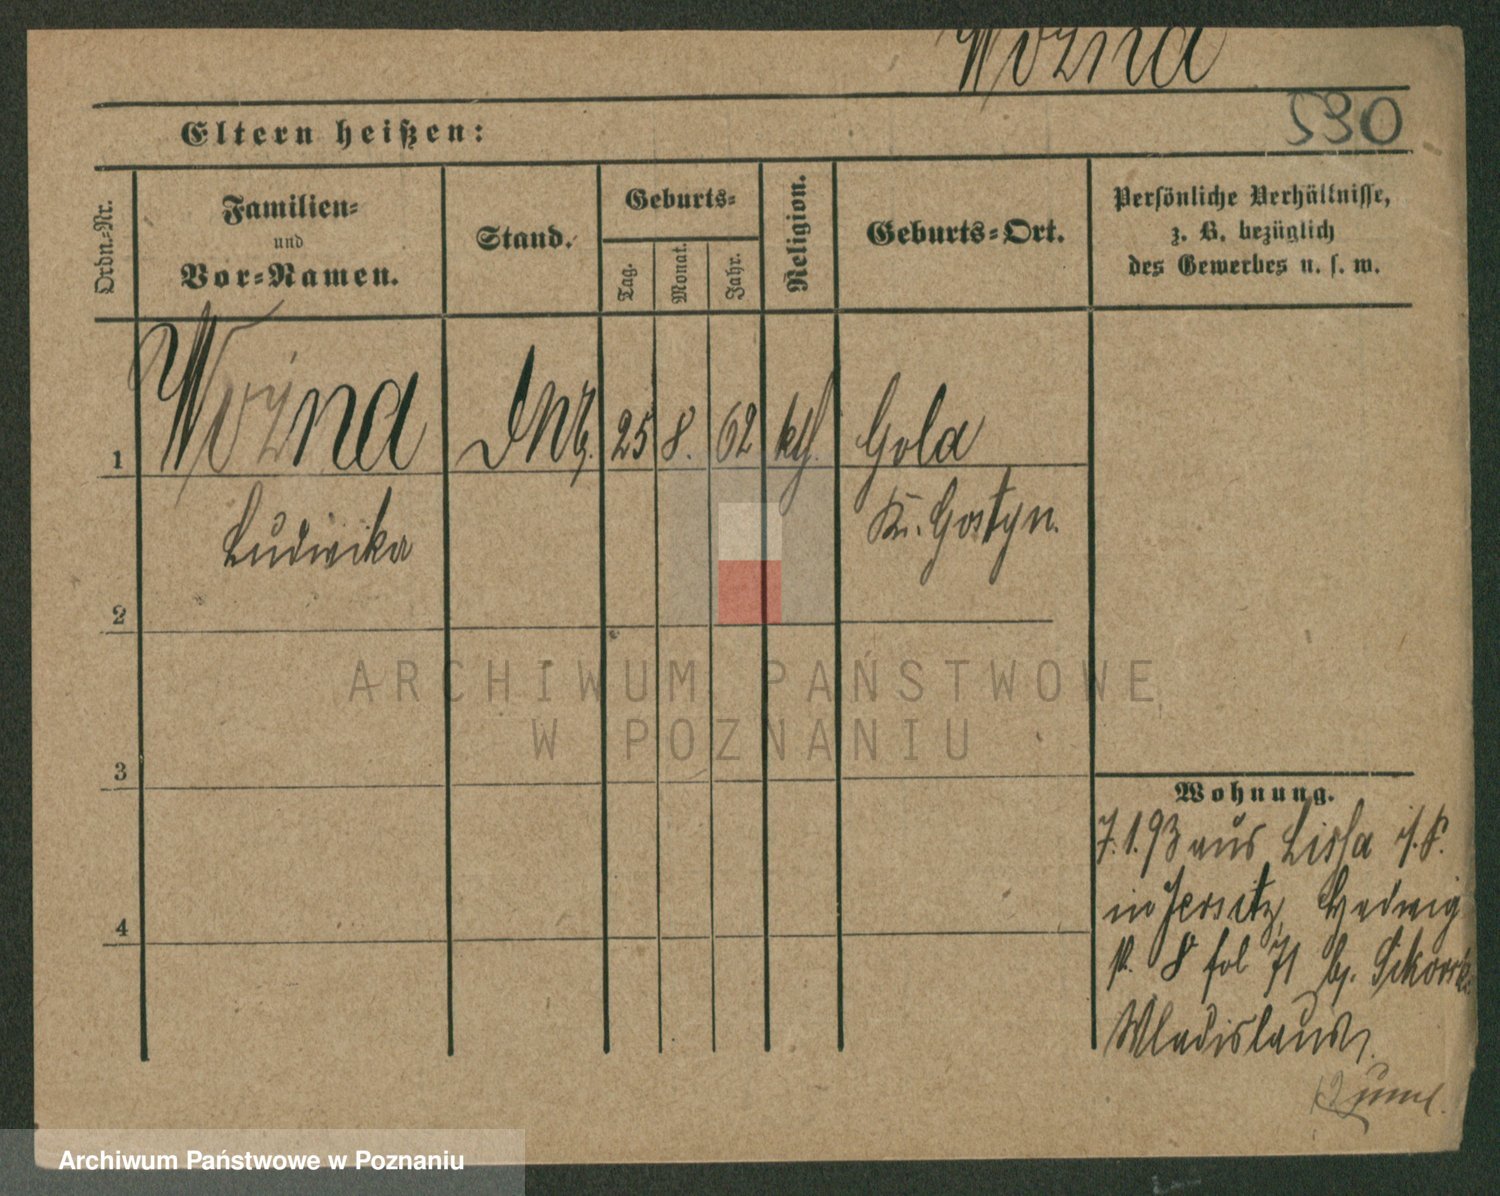 Woźna
530
Eltern heißen:
Ordn.-Nr.
Familien-
und
Vor-Namen.
Stand.
Geburts-
Tag.
Monat.
Jahr.
Religion.
Geburts-Ort.
Persönliche Verhältnisse,
z. B. bezüglich
des Gewerbes u. s. w.
1
Woźna
25
8.
62
kth.
Gola
Ludwika
Kr. Gostyn.
2
ARCHIWUM PAŃSTWOWE
W POZNANIU
3
Wohnung.
7.1.93 aus Lissa i/P.
4
in Jersitz, Hedwig
8 fol 71 b.
Wladislaus
Archiwum Państwowe w Poznaniu